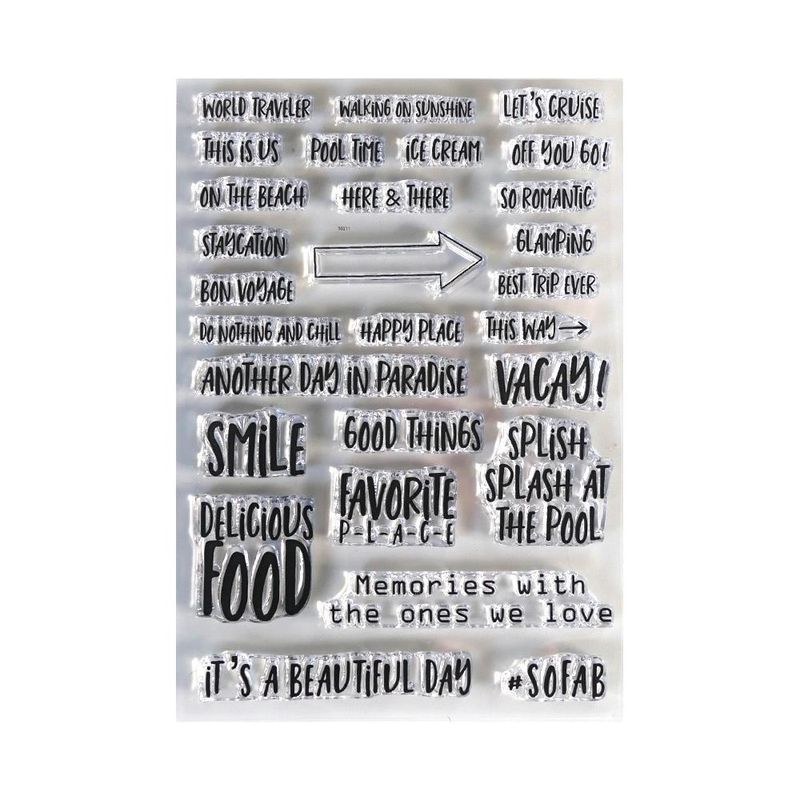 WORLD TRAVELER
WALKING ON SUNSHINE
LET'S CRUISE
THIS IS US
POOL TIME
ICE CREAM
OFF YOU GO!
ON THE BEACH
HERE & THERE
SO ROMANTIC
STAYCATION
GLAMPING
BON VOYAGE
BEST TRIP EVER
DO NOTHING AND CHILL
HAPPY PLACE
THIS WAY→
ANOTHER DAY IN PARADISE
VACAY!
SMILE
GOOD THINGS
SPLISH
SPLASH AT
THE POOL
FAVORITE
P-L-A-C-E
DELICIOUS
FOOD
Memories with
the ones we love
IT'S A BEAUTIFUL DAY
#SOFAB